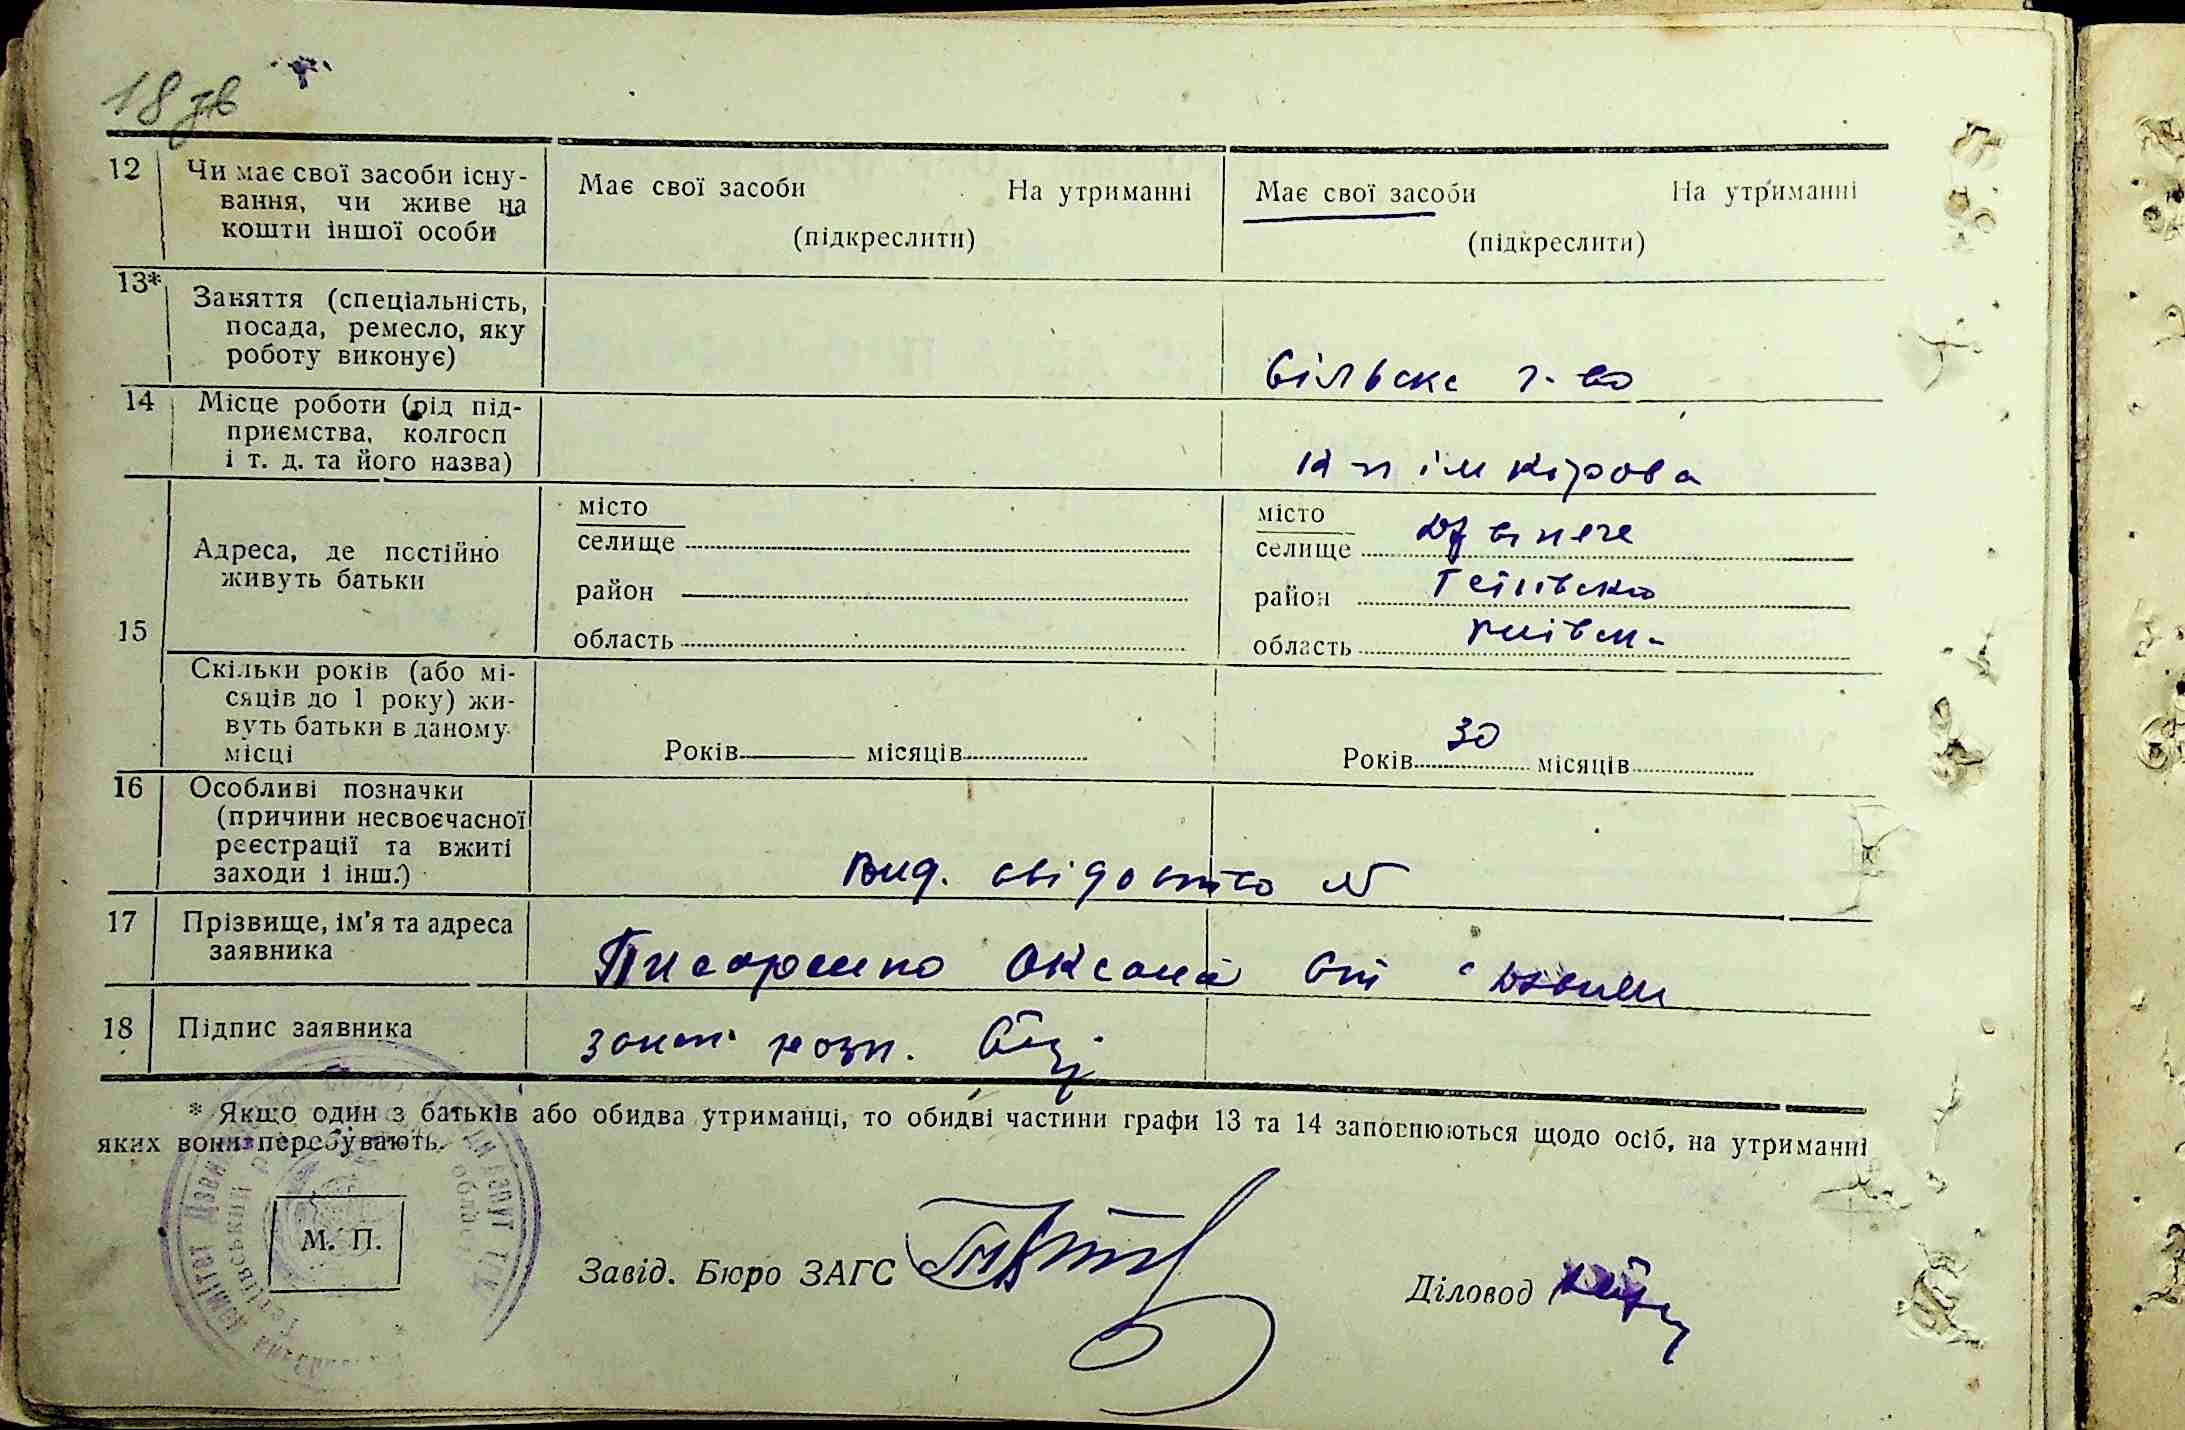 18 зв
12 Чи має свої засоби існу-
вання, чи живе на
кошти іншої особи
Має свої засоби На утриманні
(підкреслити)
Має свої засоби На утриманні
(підкреслити)
13* Заняття (спеціальність,
посада, ремесло, яку
роботу виконує)
сільске г-во
14 Місце роботи (рід під-
приємства, колгосп
і т. д. та його назва)
ім Кірова
15 Адреса, де постійно
живуть батьки
місто
селище
район
область
місто
селище Дзвеняче
район Тетіївсько
область
Скільки років (або мі-
сяців до 1 року) жи-
вуть батьки в даному
місці
Років місяців
Років 30 місяців
16 Особливі позначки
(причини несвоєчасної
реєстрації та вжиті
заходи і інш.)
Вид. свідоцтво №
17 Прізвище, ім'я та адреса
заявника
Оксана
18 Підпис заявника
* Якщо один з батьків або обидва утриманці, то обидві частини графи 13 та 14 заповнюються щодо осіб, на утриманні
яких вони перебувають.
М. П.
Завід. Бюро ЗАГС
Діловод